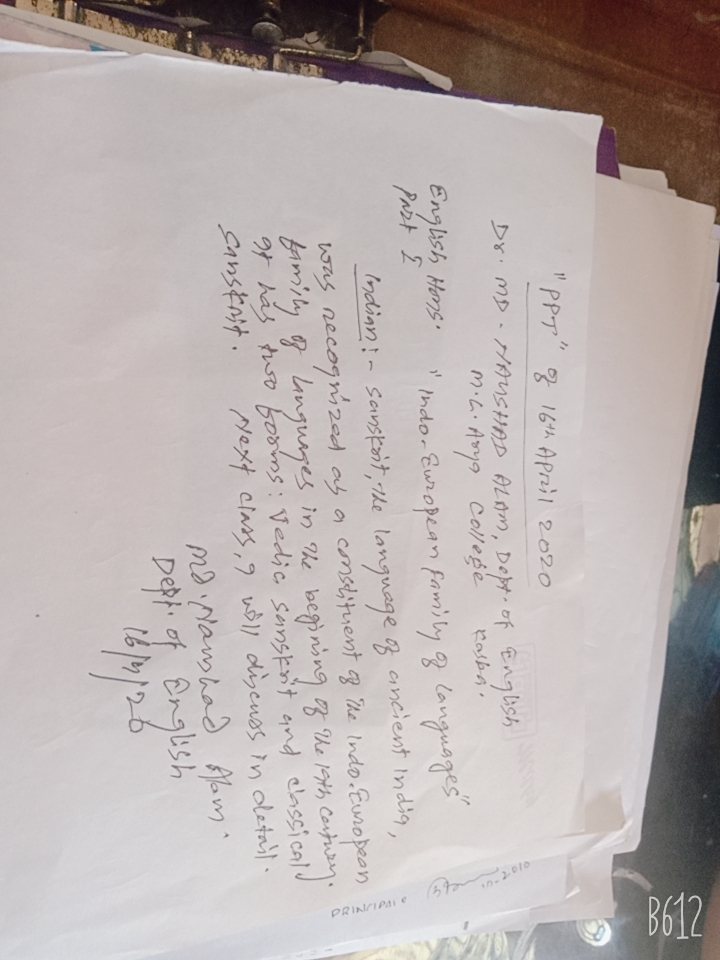 "PPT" of 16th April 2020
Dr. MD. NAUSHAD ALAM, Dept. of English
M.L. Arya College Kasba.
English Hons. "Indo-European family of languages"
Part I
Indian:- Sanskrit, the language of ancient India,
was recognized as a constituent of the Indo-European
family of languages in the begining of the 19th century.
It has two forms: Vedic sanskrit and classical
sanskrit. Next class, I will discuss in detail.
MD. Naushad Alam.
Dept. of English
16/4/20
PRINCIPAL
B612